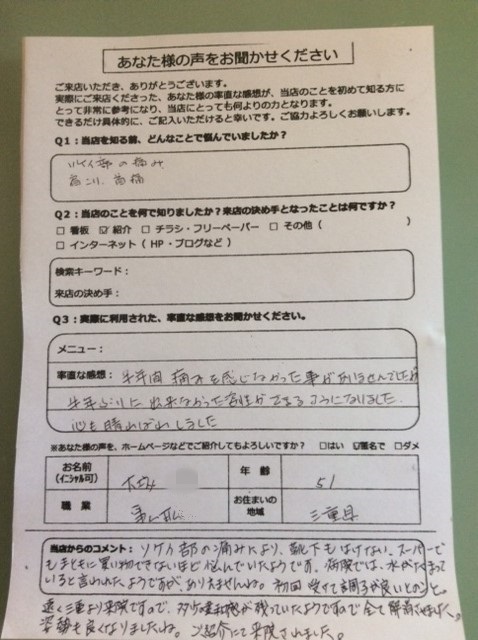 あなた様の声をお聞かせください
ご来店いただき、ありがとうございます。
実際にご来店くださった、あなた様の率直な感想が、当店のことを初めて知る方に
とって非常に参考になり、当店にとっても何よりの力となります。
できるだけ具体的に、ご記入いただけると幸いです。ご協力よろしくお願いします。
Q1：当店を知る前、どんなことで悩んでいましたか？
ソケイ部の痛み
肩こり、首痛
Q2：当店のことを何で知りましたか？来店の決め手となったことは何ですか？
□ 看板 ☑ 紹介 □ チラシ・フリーペーパー □ その他（ ）
□ インターネット（ HP・ブログなど ）
検索キーワード：
来店の決め手：
Q3：実際に利用された、率直な感想をお聞かせください。
メニュー：
率直な感想：半年間 痛みを感じなかった事がありませんでしたが
半年ぶりに出来なかった姿勢ができるようになりました。
心も晴ればれしました
※あなた様の声を、ホームページなどでご紹介してもよろしいですか？ □はい ☑匿名で □ダメ
お名前
（イニシャル可）
年 齢
51
職 業
お住まいの
地域
三重県
当店からのコメント：ソケイ部の痛みにより、靴下もはけない、スーパーで
も手ともに買い物できないほど悩んでいたようです。病院では、水がたまって
いると言われたようですが、ありえませんね。初回 受けて調子が良いとのこと。
遠く三重より来院ですので、多少違和感が残っていたようですので全て解消させました。
姿勢も良くなりましたね。ご紹介にて来院されました。